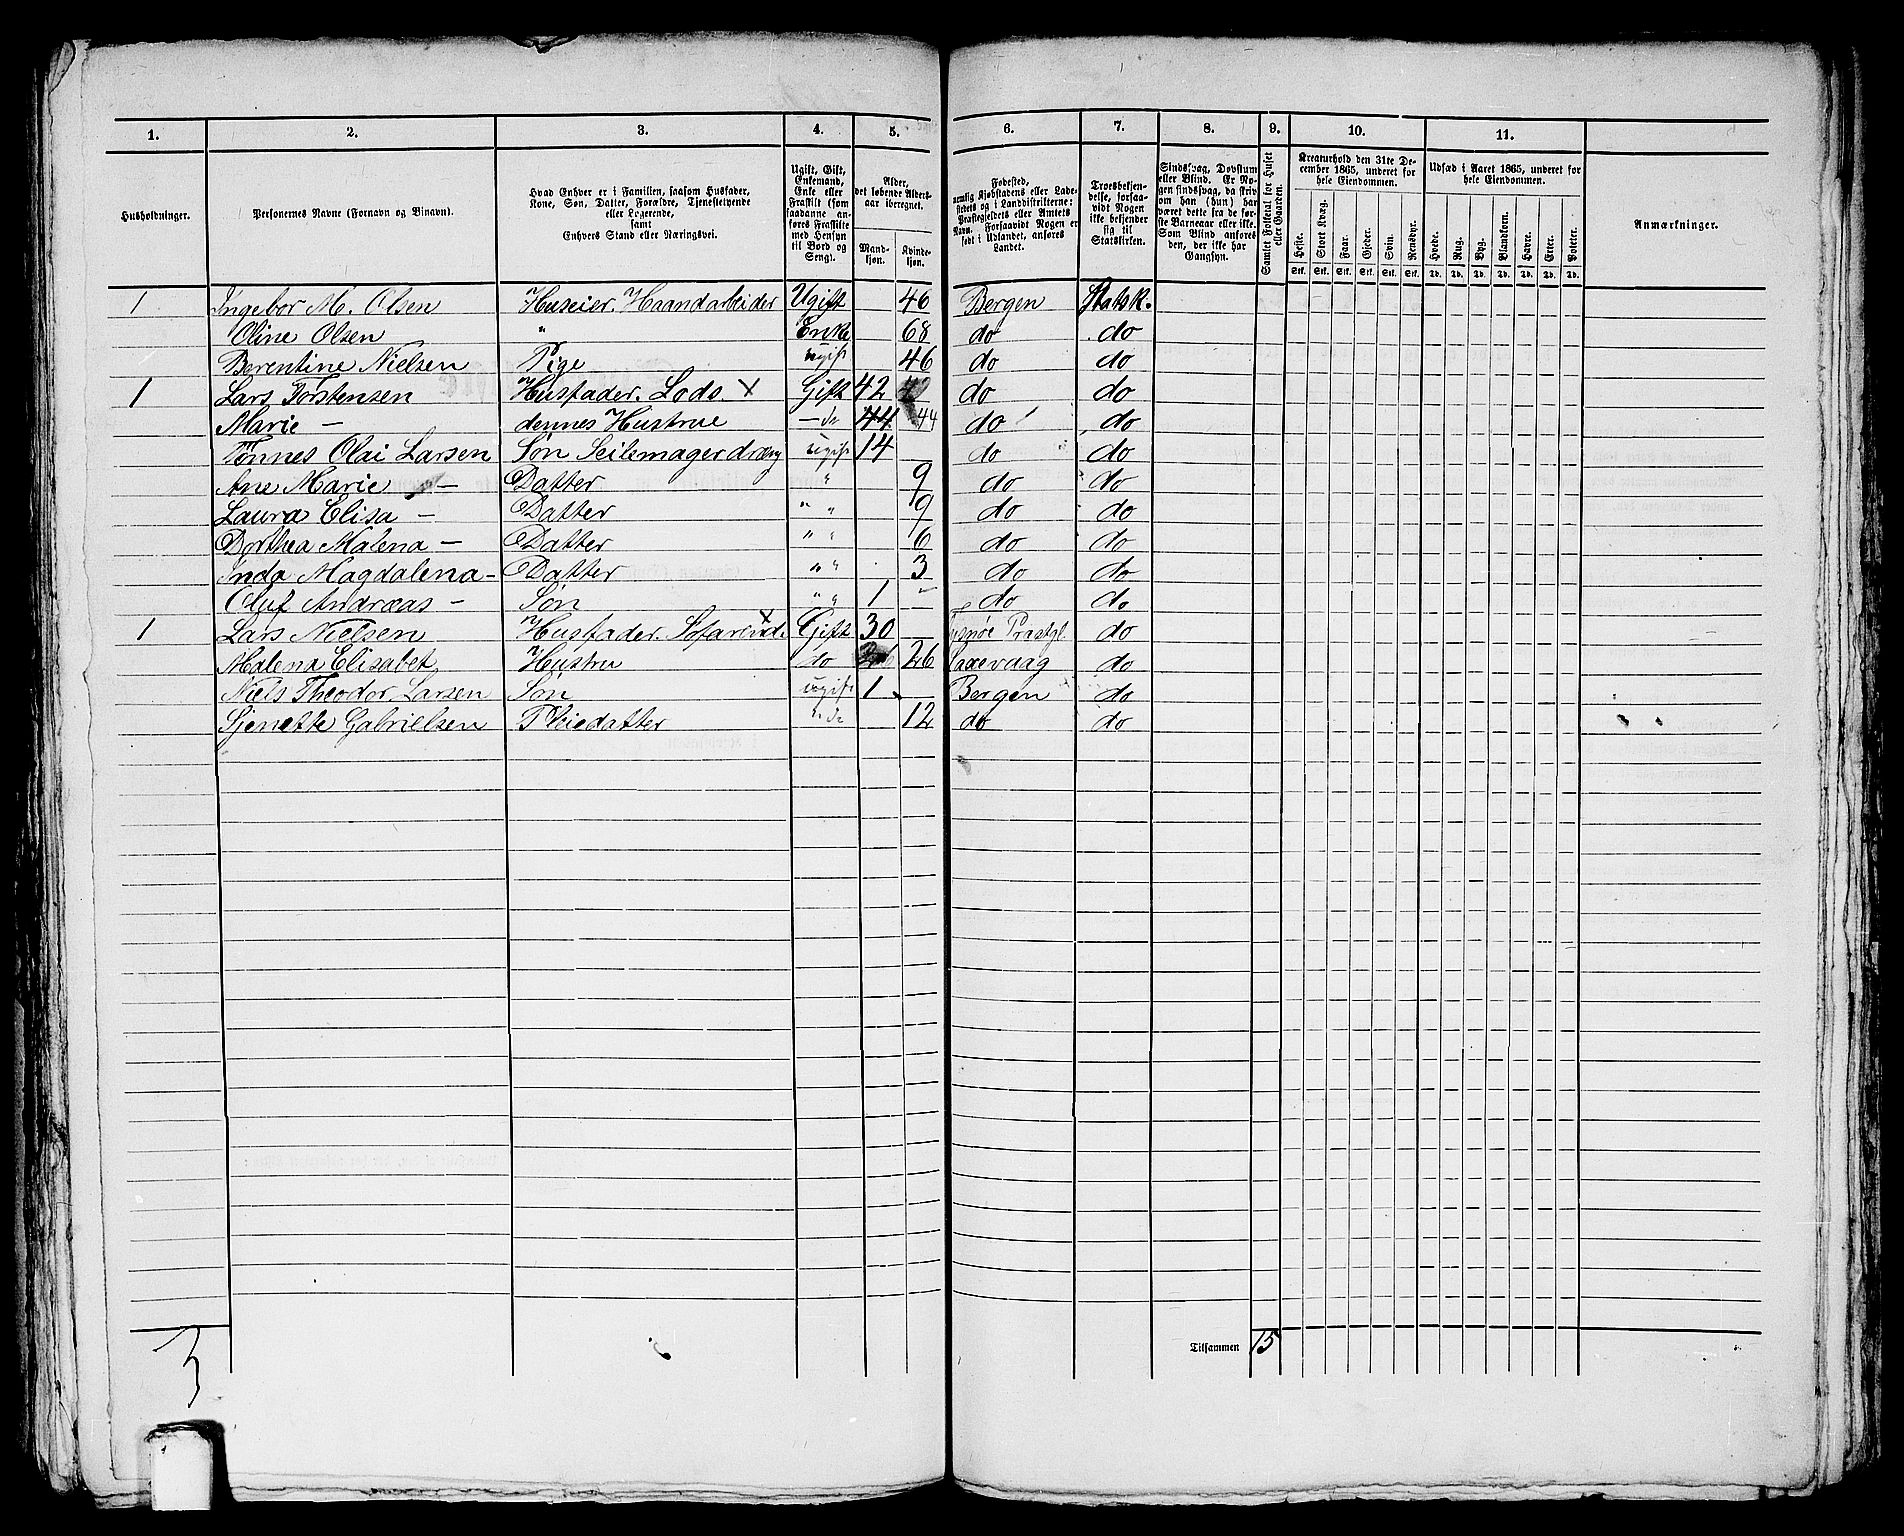 1. 2. 3. 4. 5. 6. 7. 8. 9. 10. 11.
Husholdninger.
Personernes Navne (Fornavn og Binavn).
Hvad Enhver er i Familien, saasom Husfader,
Kone, Søn, Datter, Forældre, Tjenestetyende
eller Logerende,
samt
Enhvers Stand eller Næringsvei.
Ugift, Gift,
Enkemand,
Enke eller
Fraskilt (som
saadanne an-
føres Fraskilte
med Hensyn
til Bord og
Seng).
Alder,
det løbende Alders-
aar iberegnet.
Mand-
kjøn.
Kvinde-
kjøn.
Fødested,
nemlig Kjøbstadens eller Lade-
stedets og i Landdistrikterne:
Præstegjeldets eller Amtets
Navn. Forsaavidt Nogen er
født i Udlandet, anføres
Landet.
Troesbekjen-
delse, forsaa-
vidt Nogen
ikke bekjender
sig til
Statskirken.
Sindssvag, Døvstum
eller Blind. Er No-
gen sindssvag, da skriv
om han (hun) har
været dette fra de før-
ste Barneaar eller ikke.
Som Blind anføres
den, der ikke har
Gangsyn.
Samlet Folketal for Huset
eller Gaarden.
Kreaturhold den 31te De-
cember 1865, underet for
hele Eiendommen.
Heste. Stort Kvæg. Faar. Gjeder. Svin. Rensdyr.
Stk. Stk. Stk. Stk. Stk. Stk.
Udsæd i Aaret 1865, underet for
hele Eiendommen.
Hvede. Rug. Byg. Blandkorn. Havre. Erter. Poteter.
Td. Td. Td. Td. Td. Td. Td.
Anmærkninger.
1 Ingebor M. Olsen Huseier. Haandarbeider Ugift 46 Bergen Statsk.
Oline Olsen " Enke 68 do do
Berentine Nielsen Pige ugift 46 do do
1 Lars Torstensen Husfader. Lods X Gift 42 do do
Marie — dennes Hustrue — do 44 44 do do
Tønnes Olai Larsen Søn Seilmager dreng ugift 14 do do
Ane Marie — Datter " 9 do do
Laura Elisa — Datter " " 9 do do
Dorthea Malena — Datter " " 6 do do
Inda Magdalena — Datter " " 3 do do
Oluf Andreas — Søn " " 1 do do
1 Lars Nielsen Husfader. Gift 30 Tysnøe Præstgl. do
Malena Elisabet Hustru do 26 do
Niels Theodor Larsen Søn ugift 1 Bergen do
Sjenette Gabrielsen Pleiedatter " do 12 do do
3
Tilsammen 15